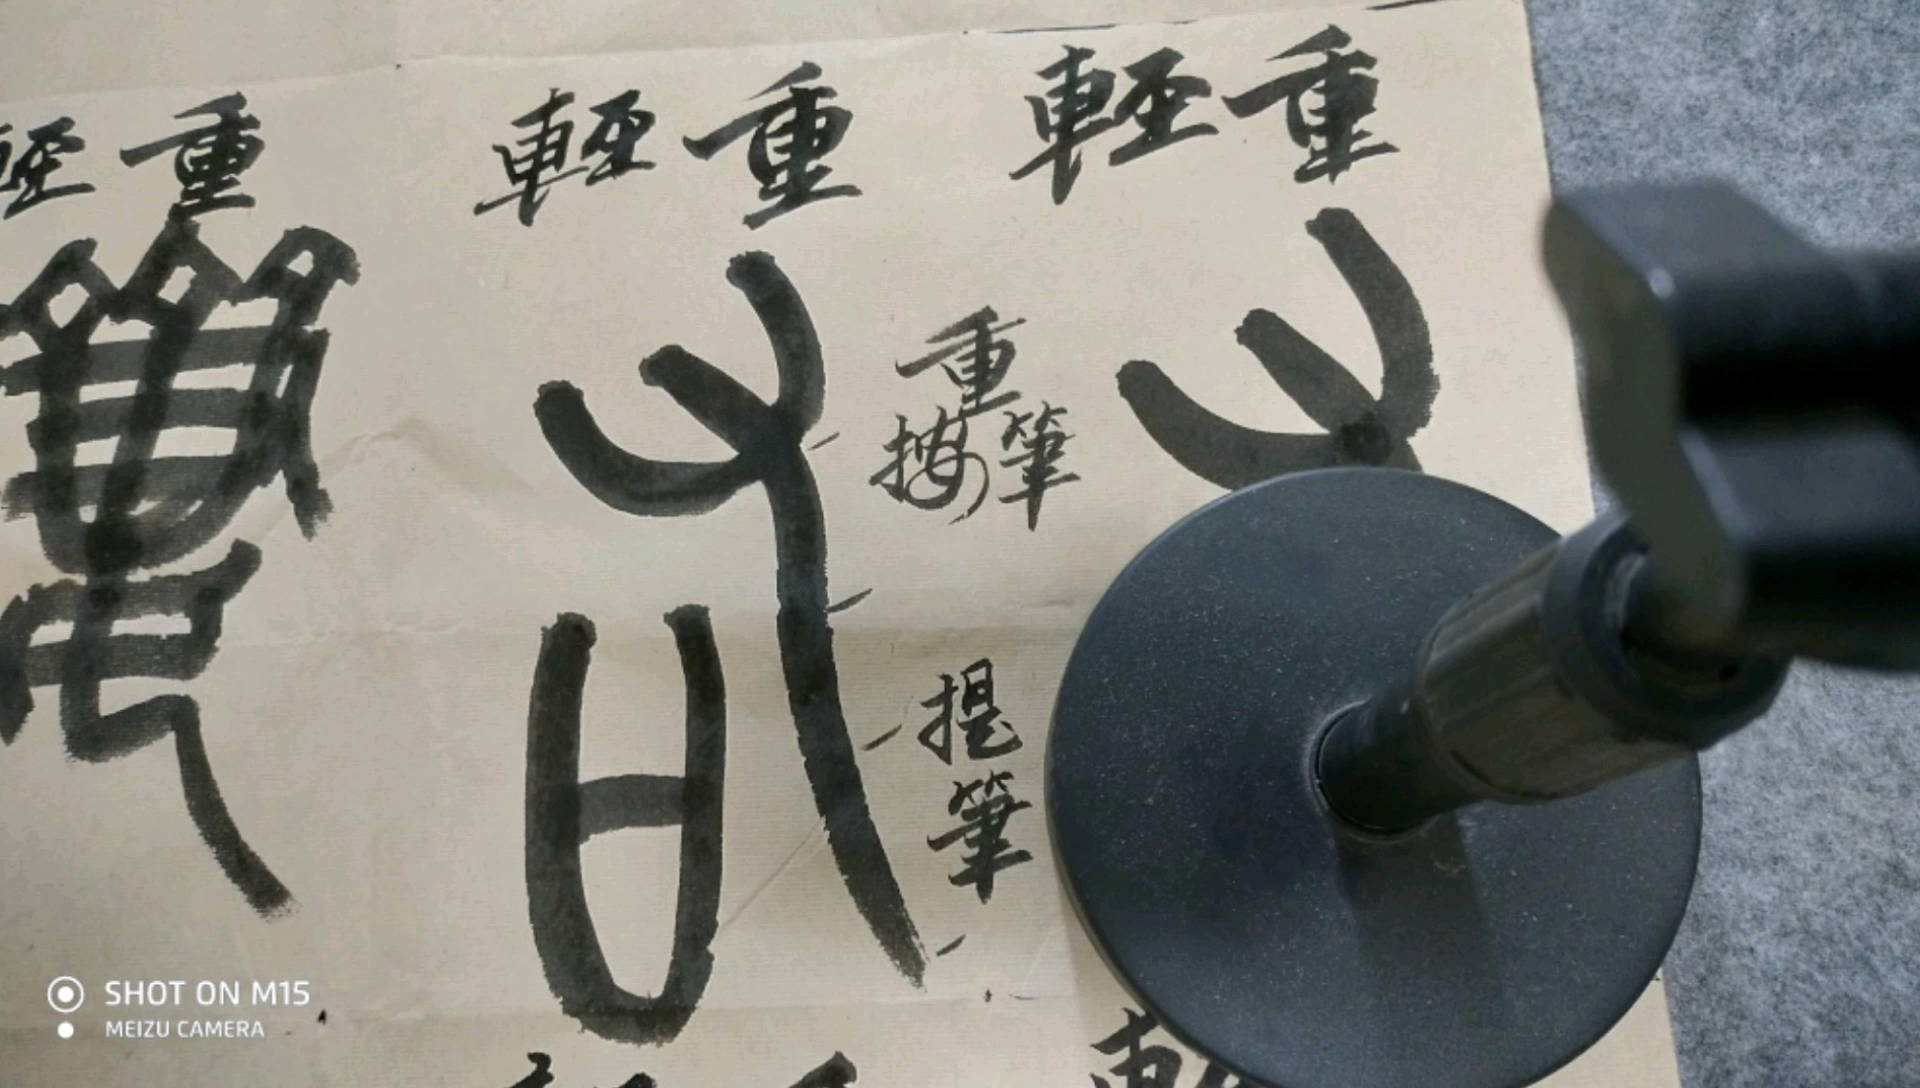 輕重
輕重
輕重
重
按筆
提
筆
右
SHOT ON M15
MEIZU CAMERA